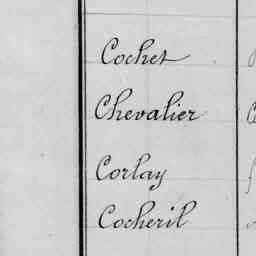 Cochet
Chevalier
Corlay
Cocheril